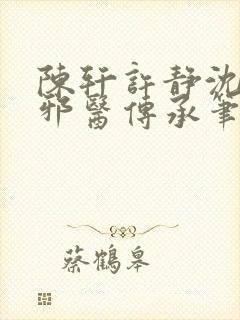 陳轩許靜沈
邪醫傳承筆
蔡鶴皋